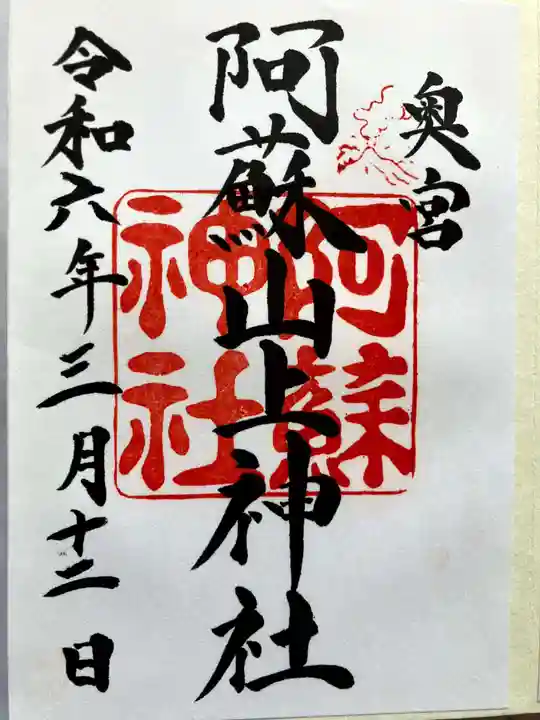 奥宮
阿蘇山上神社
阿蘇
神社
令和六年三月十二日